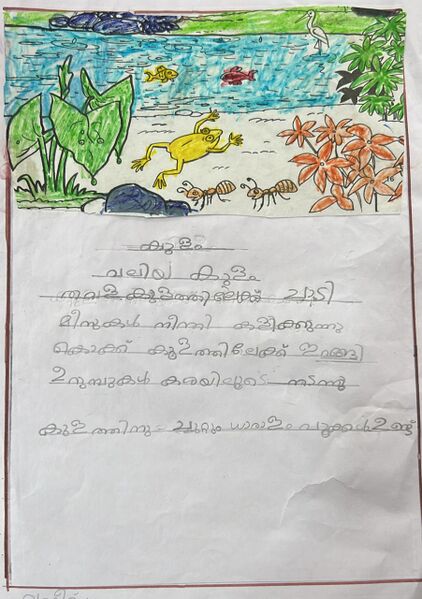 കുളം
വലിയ കുളം
തവള കുളത്തിലേക്ക് ചാടി
മീനുകൾ നീന്തി കളിക്കുന്നു
കൊക്ക് കുളത്തിലേക്ക് ഇറങ്ങി
ഉറുമ്പുകൾ കരയിലൂടെ നടന്നു
കുളത്തിനു ചുറ്റും ധാരാളം പൂക്കൾ ഉണ്ട്